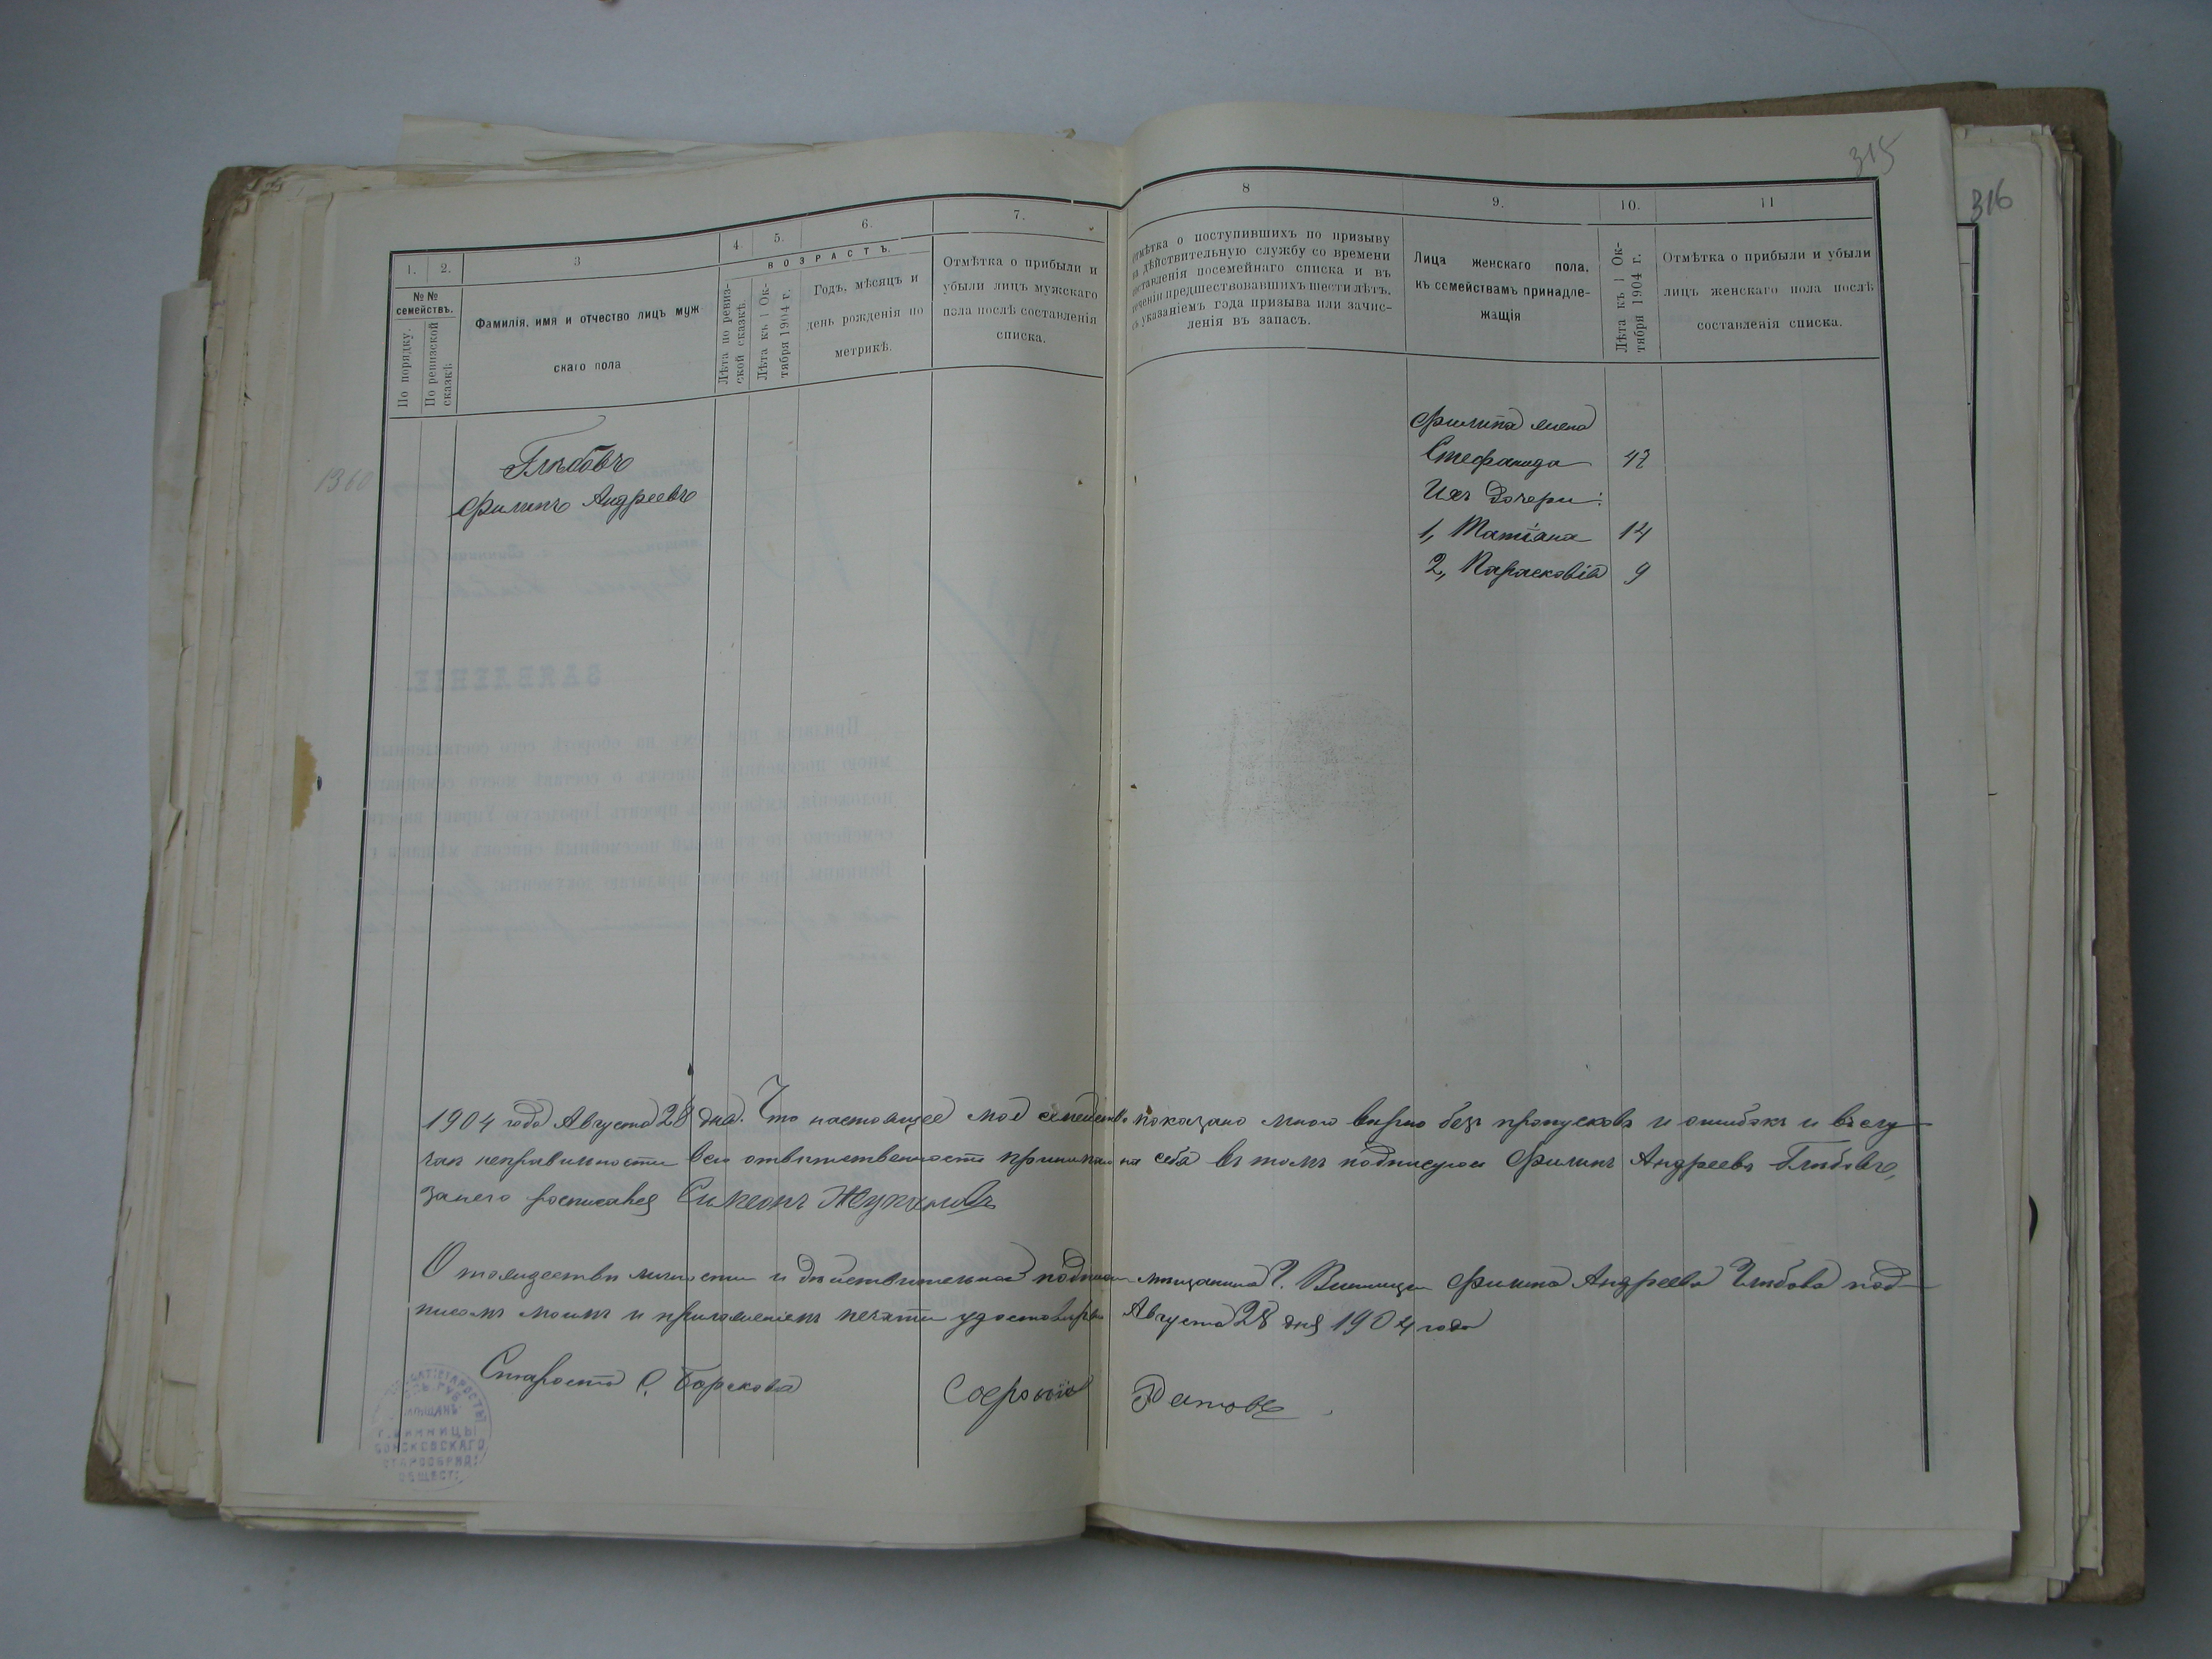 315
316
1.
2.
3
4.
5.
6.
7.
№ №
семействъ.
По порядку.
По ревизской
сказкѣ.
Фамилія, имя и отчество лицъ муж
скаго пола
ВОЗРАСТЪ.
Лѣта по ревиз-
ской сказкѣ.
Лѣта къ 1 Ок-
тября 1904 г.
Годъ, мѣсяцъ и
день рожденія по
метрикѣ.
Отмѣтка о прибыли и
убыли лицъ мужскаго
пола послѣ составленія
списка.
8
9.
10.
11
Отмѣтка о поступившихъ по призыву
на дѣйствительную службу со времени
составленія посемейнаго списка и въ
теченіи предшествовавшихъ шести лѣтъ,
съ указаніемъ года призыва или зачис-
ленія въ запасъ.
Лица женскаго пола,
къ семействамъ принадле-
жащія
Лѣта къ 1 Ок-
тября 1904 г.
Отмѣтка о прибыли и убыли
лицъ женскаго пола послѣ
составленія списка.
1360
Глѣбовъ
Филипъ Андреевъ
Филипа жена
Стефанида 47
Ихъ дочери:
1, Матіана 14
2, Парасковія 9
ЗАЯВЛЕНІЕ.
1904 года Августа 28 дня. Что настоящее моё семейство показано мною вѣрно безъ пропусковъ и ошибокъ и въ слу
чаи неправильности всю отвѣтственность принимаю на себя въ томъ подписуюсь Филипъ Андреевъ Глѣбовъ,
за него росписался Симеонъ
О тождествѣ личности и дѣйствительной подписи мѣщанина Г. Винницы Филипа Андреева Глѣбова под
писомъ моимъ и приложеніемъ печати удостовѣряю Августа 28 дня 1904 года
Староста С. Борскова
Г. ВИННИЦЫ
БОРСКОВСКАГО
СТАРООБРЯД:
ОБЩЕСТ: